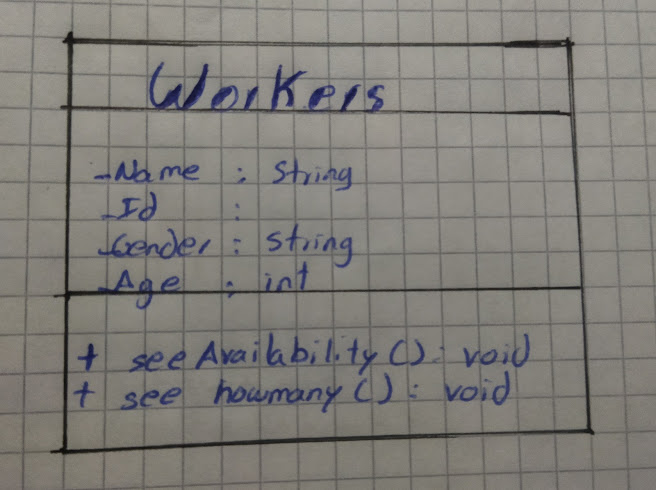 Workers
-Name : String
-Id :
-Gender : string
-Age : int
+ see Availability () : void
+ see howmany () : void